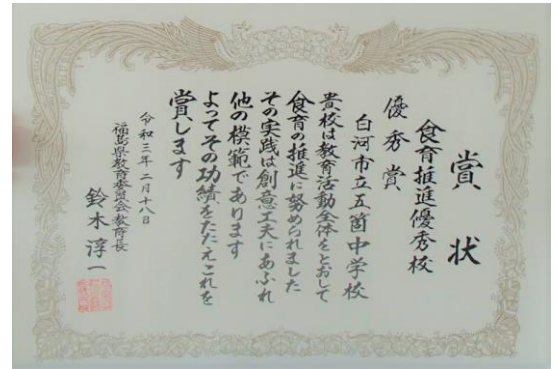 賞状
食育推進優秀校
優秀賞
白河市立五箇中学校
貴校は教育活動全体をとおして
食育の推進に努められました
その実践は創意工夫にあふれ
他の模範であります
よってその功績をたたえこれを
賞します
令和三年二月十八日
福島県教育委員会教育長
鈴木淳一